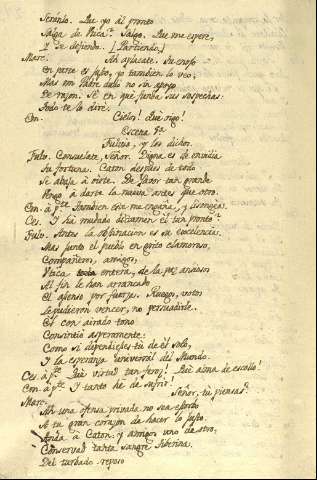 Seránlo. Que yo al pronto
Salga de Utica? Salgo. Que me espere,
Y se defienda. [Partiendo.]
Marc. Ah aplacate. Su enojo
En parte es justo, yo tambien lo veo;
Mas mi Padre dudó no sin apoyo
De razon. Sé en qué funda sus sospechas:
Todo te lo diré.
Em. Cielos! Qué oigo!
Escena 9ª
Fulvio, y los dichos.
Fulv. Consuelate, Señor. Digna es de envidia
Tu fortuna. Caton despues de todo
Se abaja á verte. De favor tan grande
Vengo á darte la nueva antes que otro.
Em. á pte. Tambien este me engaña, y lisongea.
Ces. Y ha mudado dictamen él tan pronto?
Fulv. Antes la obstinacion es su excelencia.
Mas junto el pueblo en grito clamoroso,
Compañeros, amigos,
Utica entera, de la paz ansiosa
Al fin le han arrancado
El asenso por fuerza. Ruegos, votos
Le pudieron vencer, no persuadirle.
Es con airado tono
Consintió asperamente:
Como si dependieses tú de él solo,
Y la esperanza universal del Mundo.
Ces. á pte. Qué virtud tan feroz! Qué alma de escollo!
Em. á pte. Y tanto he de sufrir!
Marc. Señor, tú piensas?
Ah una ofensa privada no sea estorbo
A tu gran corazon de hacer lo justo.
Anda á Caton: y amigos uno de otro,
Conservad tanta sangre Tiberina.
Del turbado reposo